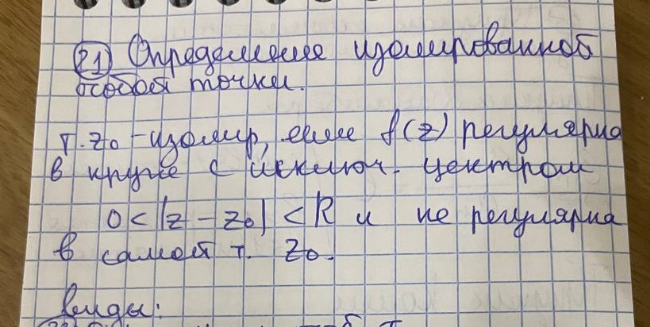 21) Определение изолированной
особой точки.
т. z₀ - изолир, если f(z) регулярна
в круге с исключ. центром
0 < |z - z₀| < R и не регулярна
в самой т. z₀.
виды: